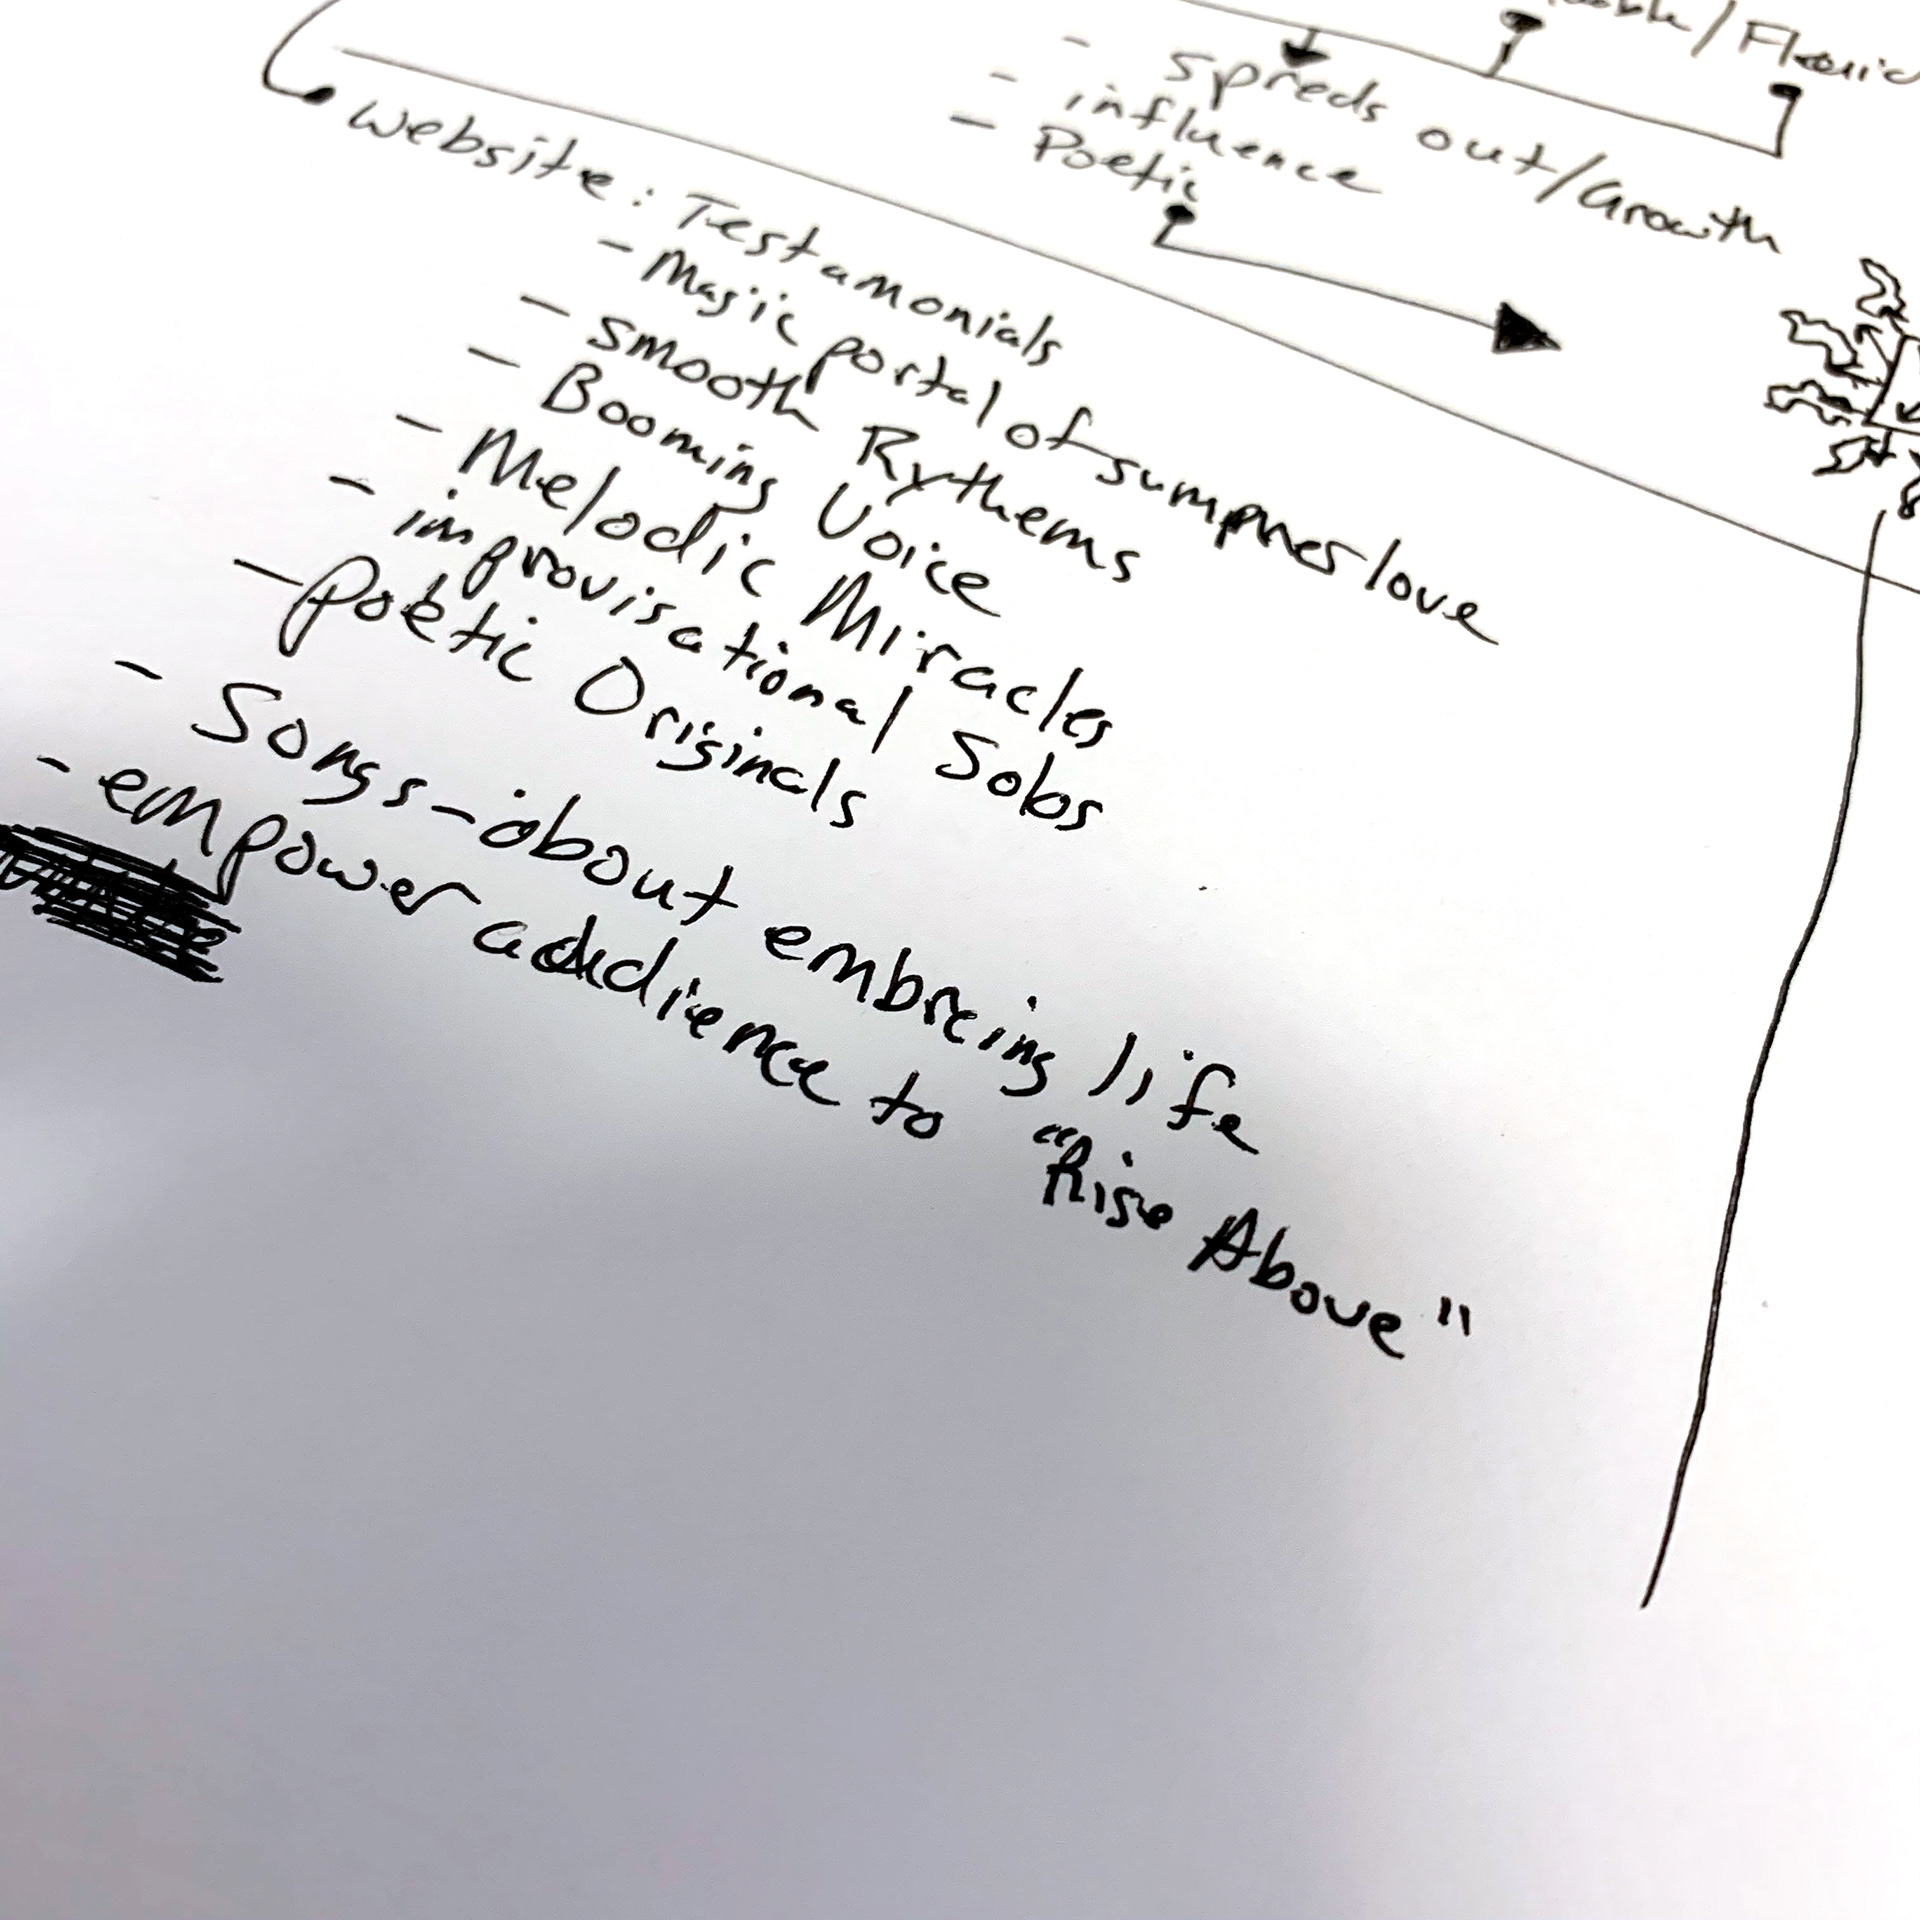 - Spreds out/Growth
- influence
- Poetic
website: Testamonials
- Magic portal of summnes love
- smooth Rythems
- Booming Voice
- Melodic Miracles
- improvisational Solos
- Poetic Originals
- Songs-about embracing life
- empower audience to "Rise Above"